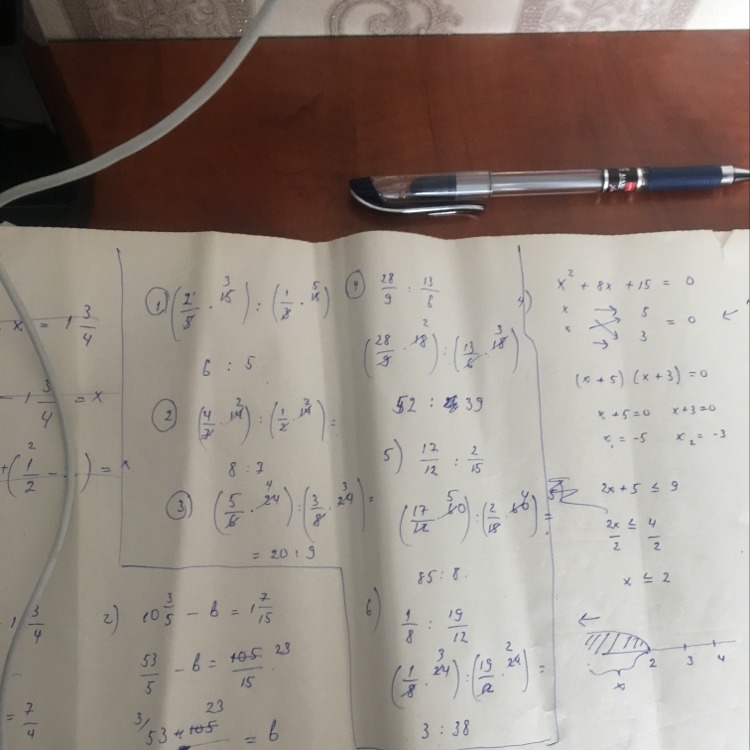 x = 1 3/4
- 1 3/4 = x
+ (1 2/2 - ) = x
1 3/4
= 7/4
1) (2/5 · 15 3) : (1/3 · 15 5)
6 : 5
2 (4/7 · 14 2) : (1/2 · 14 7) =
8 : 7
3) (5/6 · 24 4) : (3/8 · 24 3) =
= 20 : 9
2) 10 3/5 - b = 1 7/15
53/5 - b = 23/15
3/ 53 23 = b
4) 28/9 : 13/6
(28/9 · 18 2) : (13/6 · 18 3)
52 : 39
5) 17/12 : 2/15
(17/12 · 60 5) : (2/15 · 60 4) =
85 : 8
6) 1/8 : 19/12
(1/8 · 24 3) : (19/12 · 24 2) =
3 : 38
4) x² + 8x + 15 = 0
x → 5
x → 3 = 0
(x + 5) (x + 3) = 0
x + 5 = 0 x + 3 = 0
x₁ = -5 x₂ = -3
2x + 5 ≤ 9
2x/2 ≤ 4/2
x ≤ 2
2 3 4
x